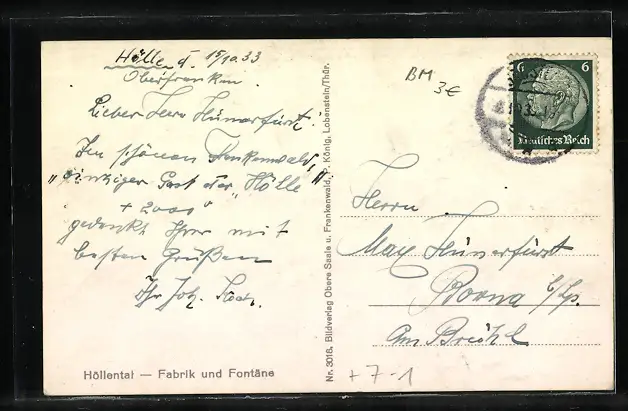 Hölle d. 15/10.33
Oberfranken
Lieber Herr Hünerfürst!
Im schönen Frankenwald,
"einziger Gast der "Hölle"
+ 2000°
gedenkt Ihrer mit
besten Grüßen
Ihr Joh.
Höllental — Fabrik und Fontäne
Nr. 3016. Bildverlag Obere Saale u. Frankenwald, P. König, Lobenstein/Thür.
BM 3€
6 6
Deutsches Reich
Herrn
Max Hünerfürst
Borna b/Lp.
Am Brühl
+7-1